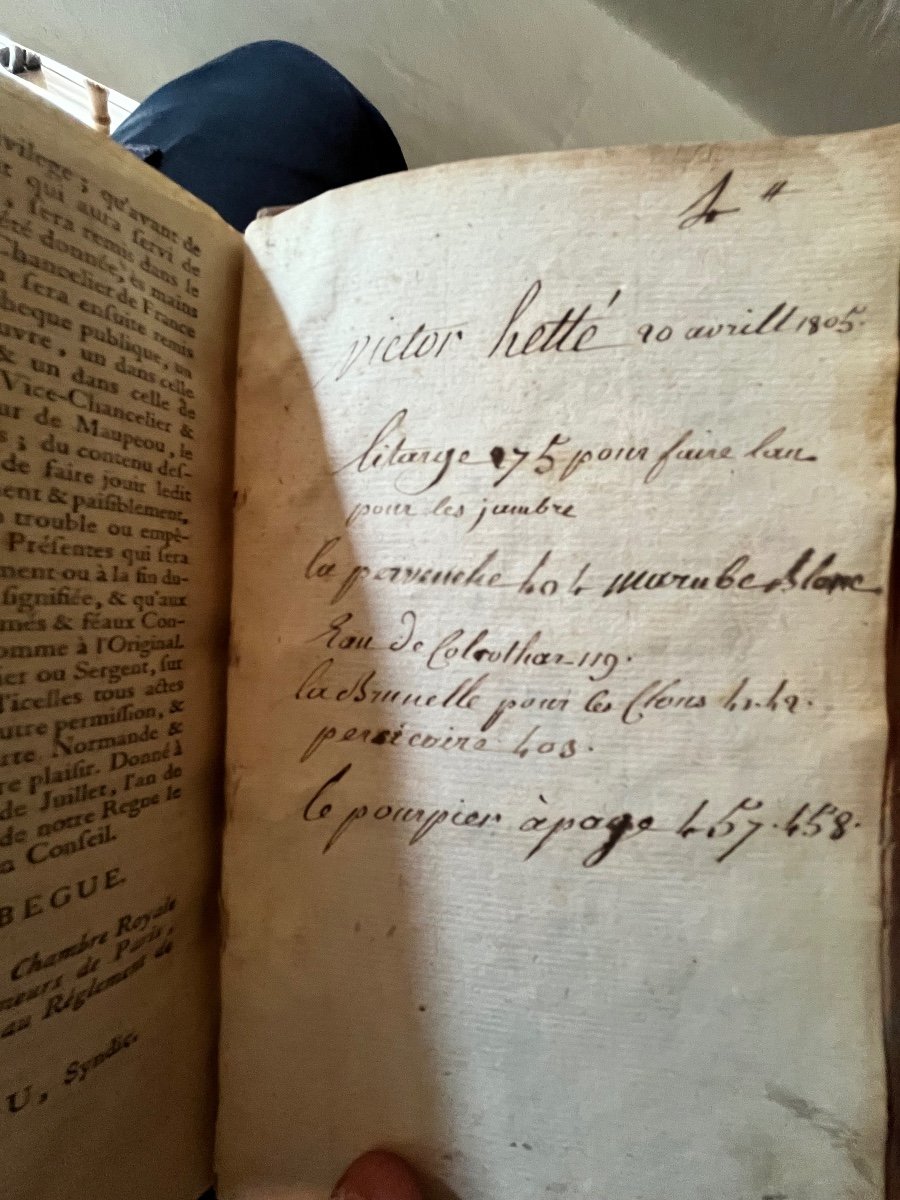 vilege ; qu'avant de
qui aura servi de
, sera remis dans le
été donnée, ès mains
Chancelier de France
sera ensuite remis
theque publique, un
uvre, un dans celle
& un dans celle de
Vice-Chancelier &
ur de Maupeou, le
s ; du contenu des-
de faire jouir ledit
ment & paisiblement,
trouble ou empê-
Présentes qui sera
ment ou à la fin du-
signifiée, & qu'aux
més & féaux Con-
omme à l'Original.
ier ou Sergent, sur
d'icelles tous actes
utre permission, &
rte Normande &
re plaisir. Donné à
de Juillet, l'an de
de notre Regne le
n Conseil.
BEGUE.
Chambre Royale
meurs de Paris,
au Réglement de
U, Syndic.
4 ₶
victor hetté 20 avrill 1805.
litarge 275 pour faire lau
pour les jambre
la pervenche 404 marube Blanc
Eau de Colcothar 119.
la Brunelle pour les Clous 41.42.
persicaire 403.
le pourpier à page 457.458.